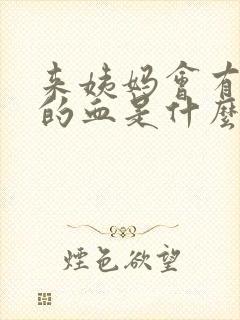 来姨妈會有
的血是什麼
煙色欲望